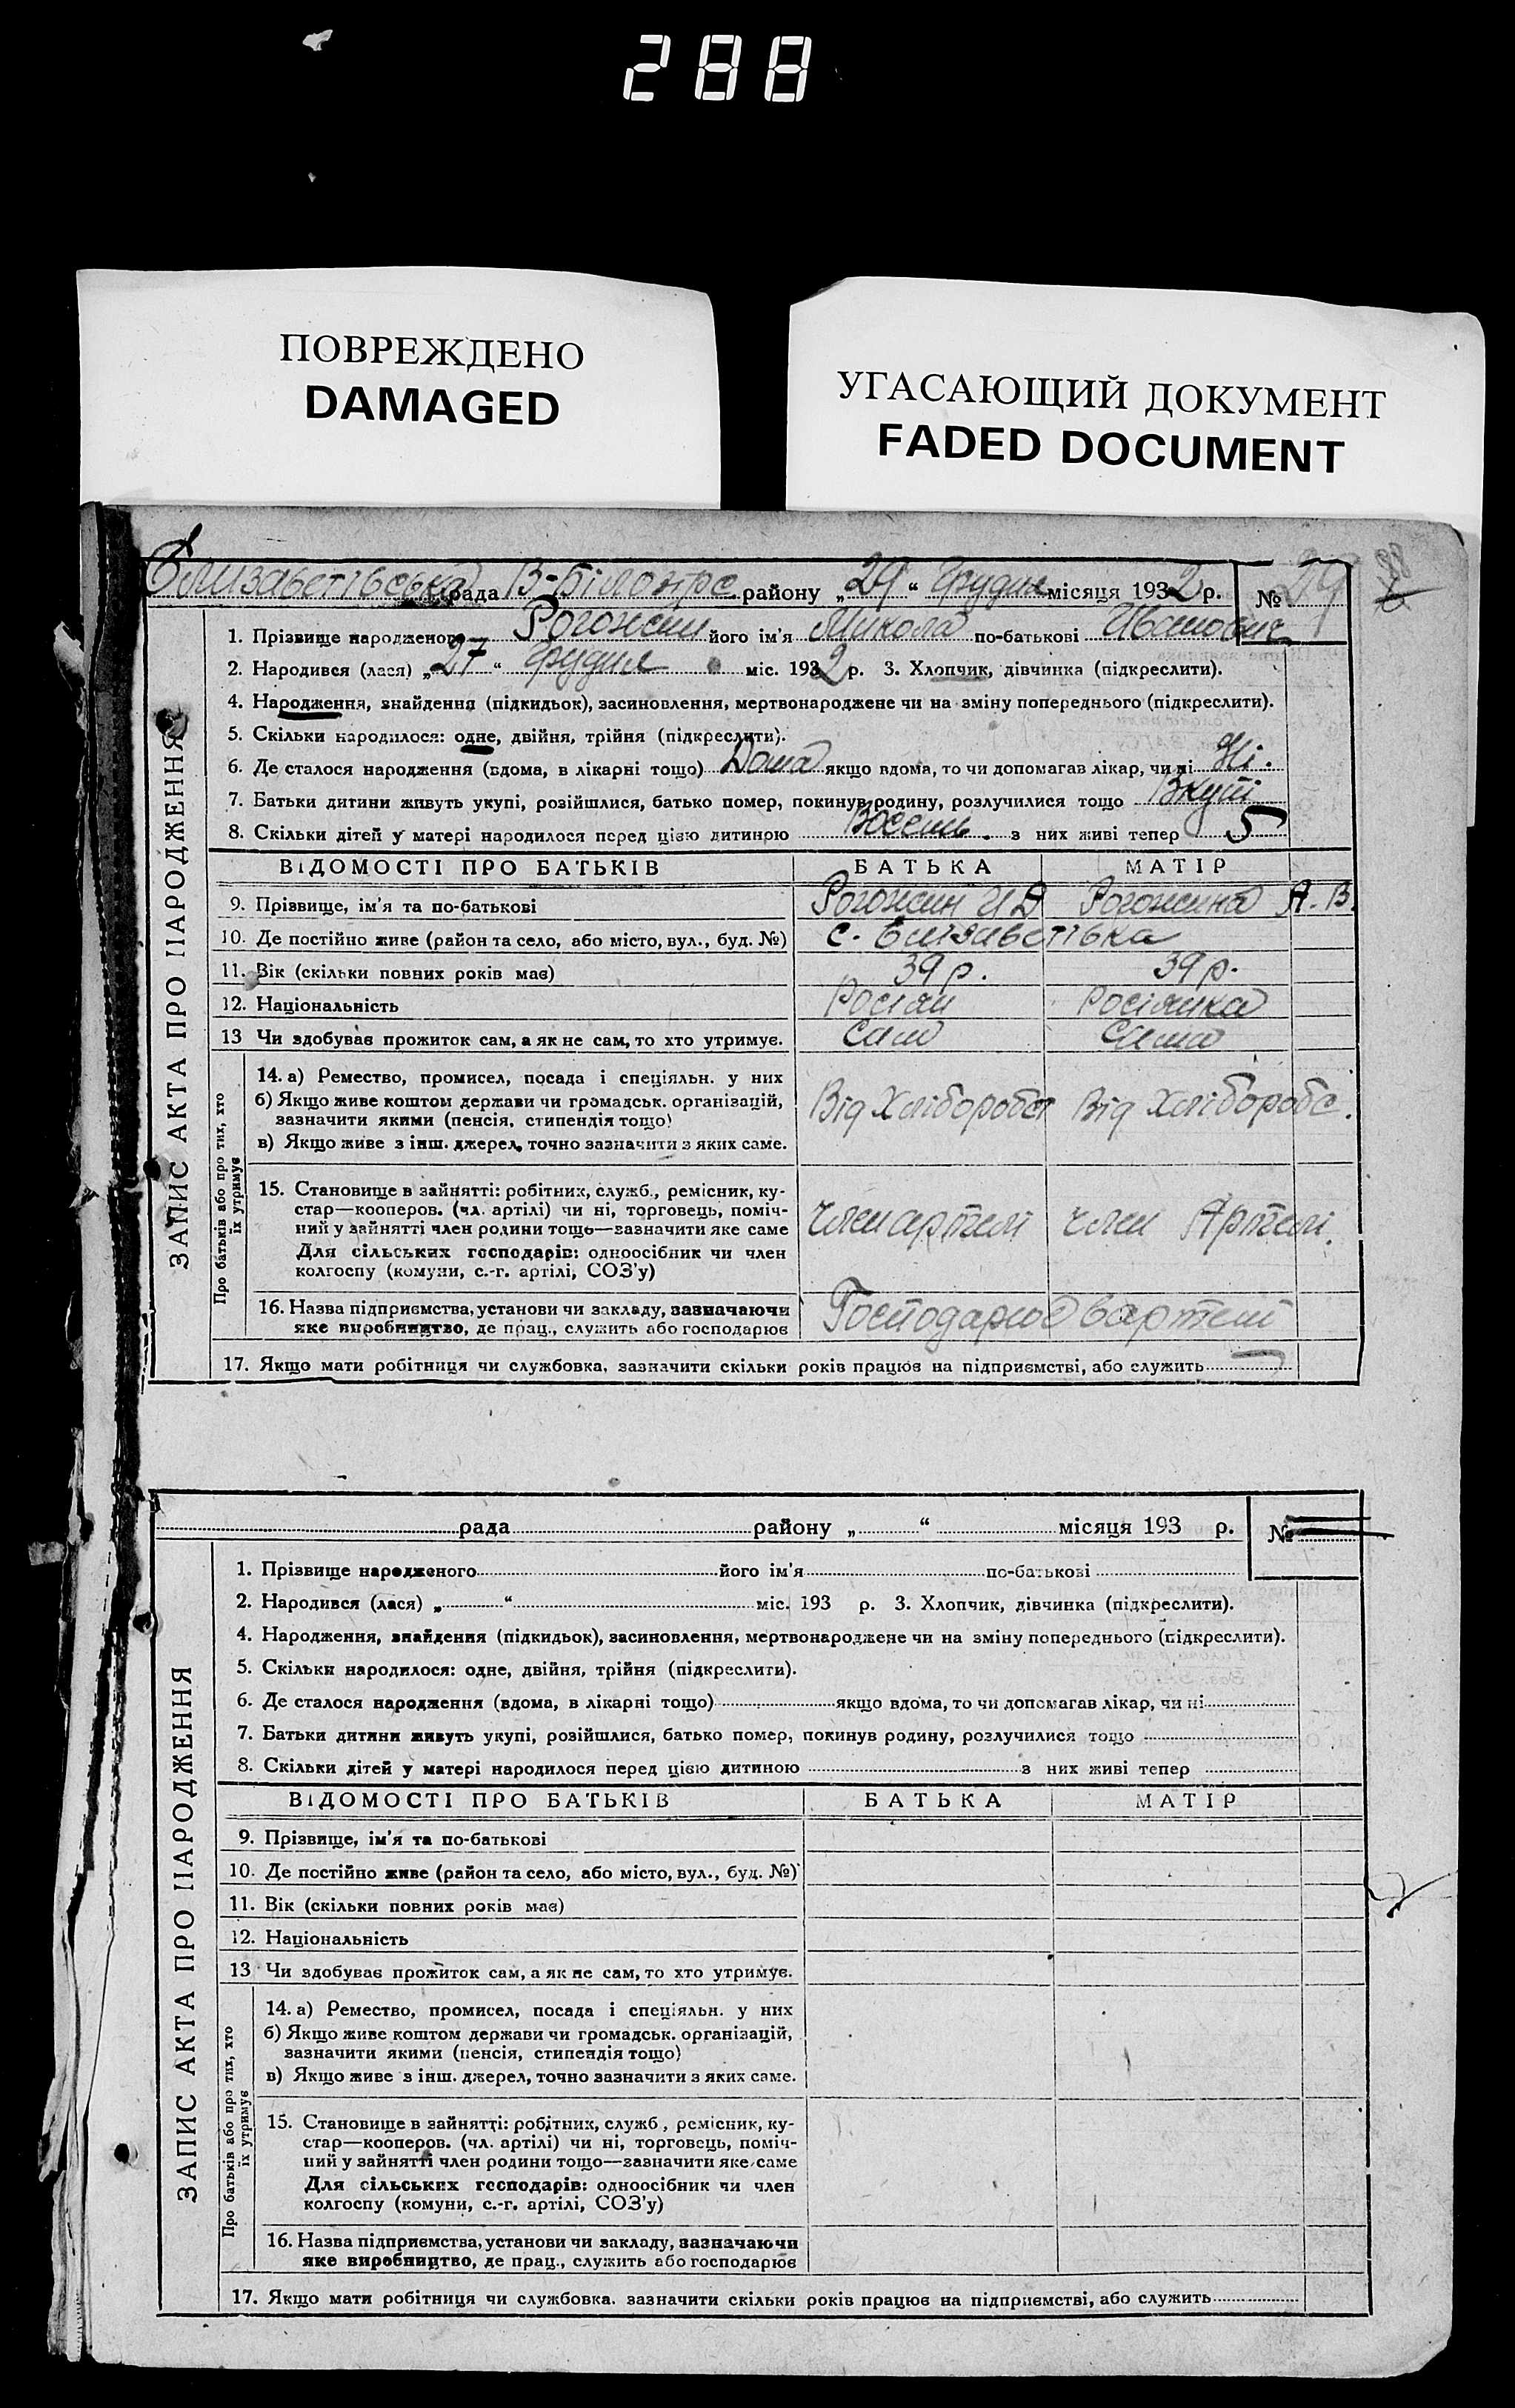 288
ПОВРЕЖДЕНО
DAMAGED
УГАСАЮЩИЙ ДОКУМЕНТ
FADED DOCUMENT
Єлизаветівська рада В-Білозірс району „29“ Грудня місяця 1932 р. № 29
1. Прізвище народженого Рогожин його ім'я Микола по-батькові Іванович
2. Народився (лася) „27“ Грудня міс. 1932 р. 3. Хлопчик, дівчинка (підкреслити).
4. Народження, знайдення (підкидьок), засиновлення, мертвонароджене чи на зміну попереднього (підкреслити).
5. Скільки народилося: одне, двійня, трійня (підкреслити).
6. Де сталося народження (вдома, в лікарні тощо) Дома якщо вдома, то чи допомагав лікар, чи ні Ні.
7. Батьки дитини живуть укупі, розійшлися, батько помер, покинув родину, розлучилися тощо Вкупі
8. Скільки дітей у матері народилося перед цією дитиною Восемь. з них живі тепер 5
ВІДОМОСТІ ПРО БАТЬКІВ БАТЬКА МАТІР
9. Прізвище, ім'я та по-батькові Рогожин И Д Рогожина А. В.
10. Де постійно живе (район та село, або місто, вул., буд. №) с. Єлізаветівка
11. Вік (скільки повних років має) 39 р. 39 р.
12. Національність Росіян Росіянка
13 Чи здобуває прожиток сам, а як не сам, то хто утримує. Сам Сама
ЗАПИС АКТА ПРО НАРОДЖЕННЯ
Про батьків або про тих, хто
їх утримує
14. а) Ремество, промисел, посада і спеціяльн. у них
б) Якщо живе коштом держави чи громадськ. організацій,
зазначити якими (пенсія, стипендія тощо)
в) Якщо живе з інш. джерел, точно зазначити з яких саме.
Від Хліборобст Від Хліборобс.
15. Становище в зайнятті: робітник, служб., ремісник, ку-
стар—кооперов. (чл. артілі) чи ні, торговець, поміч-
ний у зайнятті член родини тощо—зазначити яке саме
Для сільських господарів: одноосібник чи член
колгоспу (комуни, с.-г. артілі, СОЗ'у)
член артелі член Артелі.
16. Назва підприємства, установи чи закладу, зазначаючи
яке виробництво, де прац., служить або господарює
Господарює в артелі
17. Якщо мати робітниця чи службовка, зазначити скільки років працює на підприємстві, або служить —
рада району „ “ місяця 193 р. №
1. Прізвище народженого його ім'я по-батькові
2. Народився (лася) „ “ міс. 193 р. 3. Хлопчик, дівчинка (підкреслити).
4. Народження, знайдення (підкидьок), засиновлення, мертвонароджене чи на зміну попереднього (підкреслити).
5. Скільки народилося: одне, двійня, трійня (підкреслити).
6. Де сталося народження (вдома, в лікарні тощо) якщо вдома, то чи допомагав лікар, чи ні
7. Батьки дитини живуть укупі, розійшлися, батько помер, покинув родину, розлучилися тощо
8. Скільки дітей у матері народилося перед цією дитиною з них живі тепер
ВІДОМОСТІ ПРО БАТЬКІВ БАТЬКА МАТІР
9. Прізвище, ім'я та по-батькові
10. Де постійно живе (район та село, або місто, вул., буд. №)
11. Вік (скільки повних років має)
12. Національність
13 Чи здобуває прожиток сам, а як не сам, то хто утримує.
ЗАПИС АКТА ПРО НАРОДЖЕННЯ
Про батьків або про тих, хто
їх утримує
14. а) Ремество, промисел, посада і спеціяльн. у них
б) Якщо живе коштом держави чи громадськ. організацій,
зазначити якими (пенсія, стипендія тощо)
в) Якщо живе з інш. джерел, точно зазначити з яких саме.
15. Становище в зайнятті: робітник, служб, ремісник, ку-
стар—кооперов. (чл. артілі) чи ні, торговець, поміч-
ний у зайнятті член родини тощо—зазначити яке саме
Для сільських господарів: одноосібник чи член
колгоспу (комуни, с.-г. артілі, СОЗ'у)
16. Назва підприємства, установи чи закладу, зазначаючи
яке виробництво, де прац., служить або господарює
17. Якщо мати робітниця чи службовка. зазначити скільки років працює на підприємстві, або служить